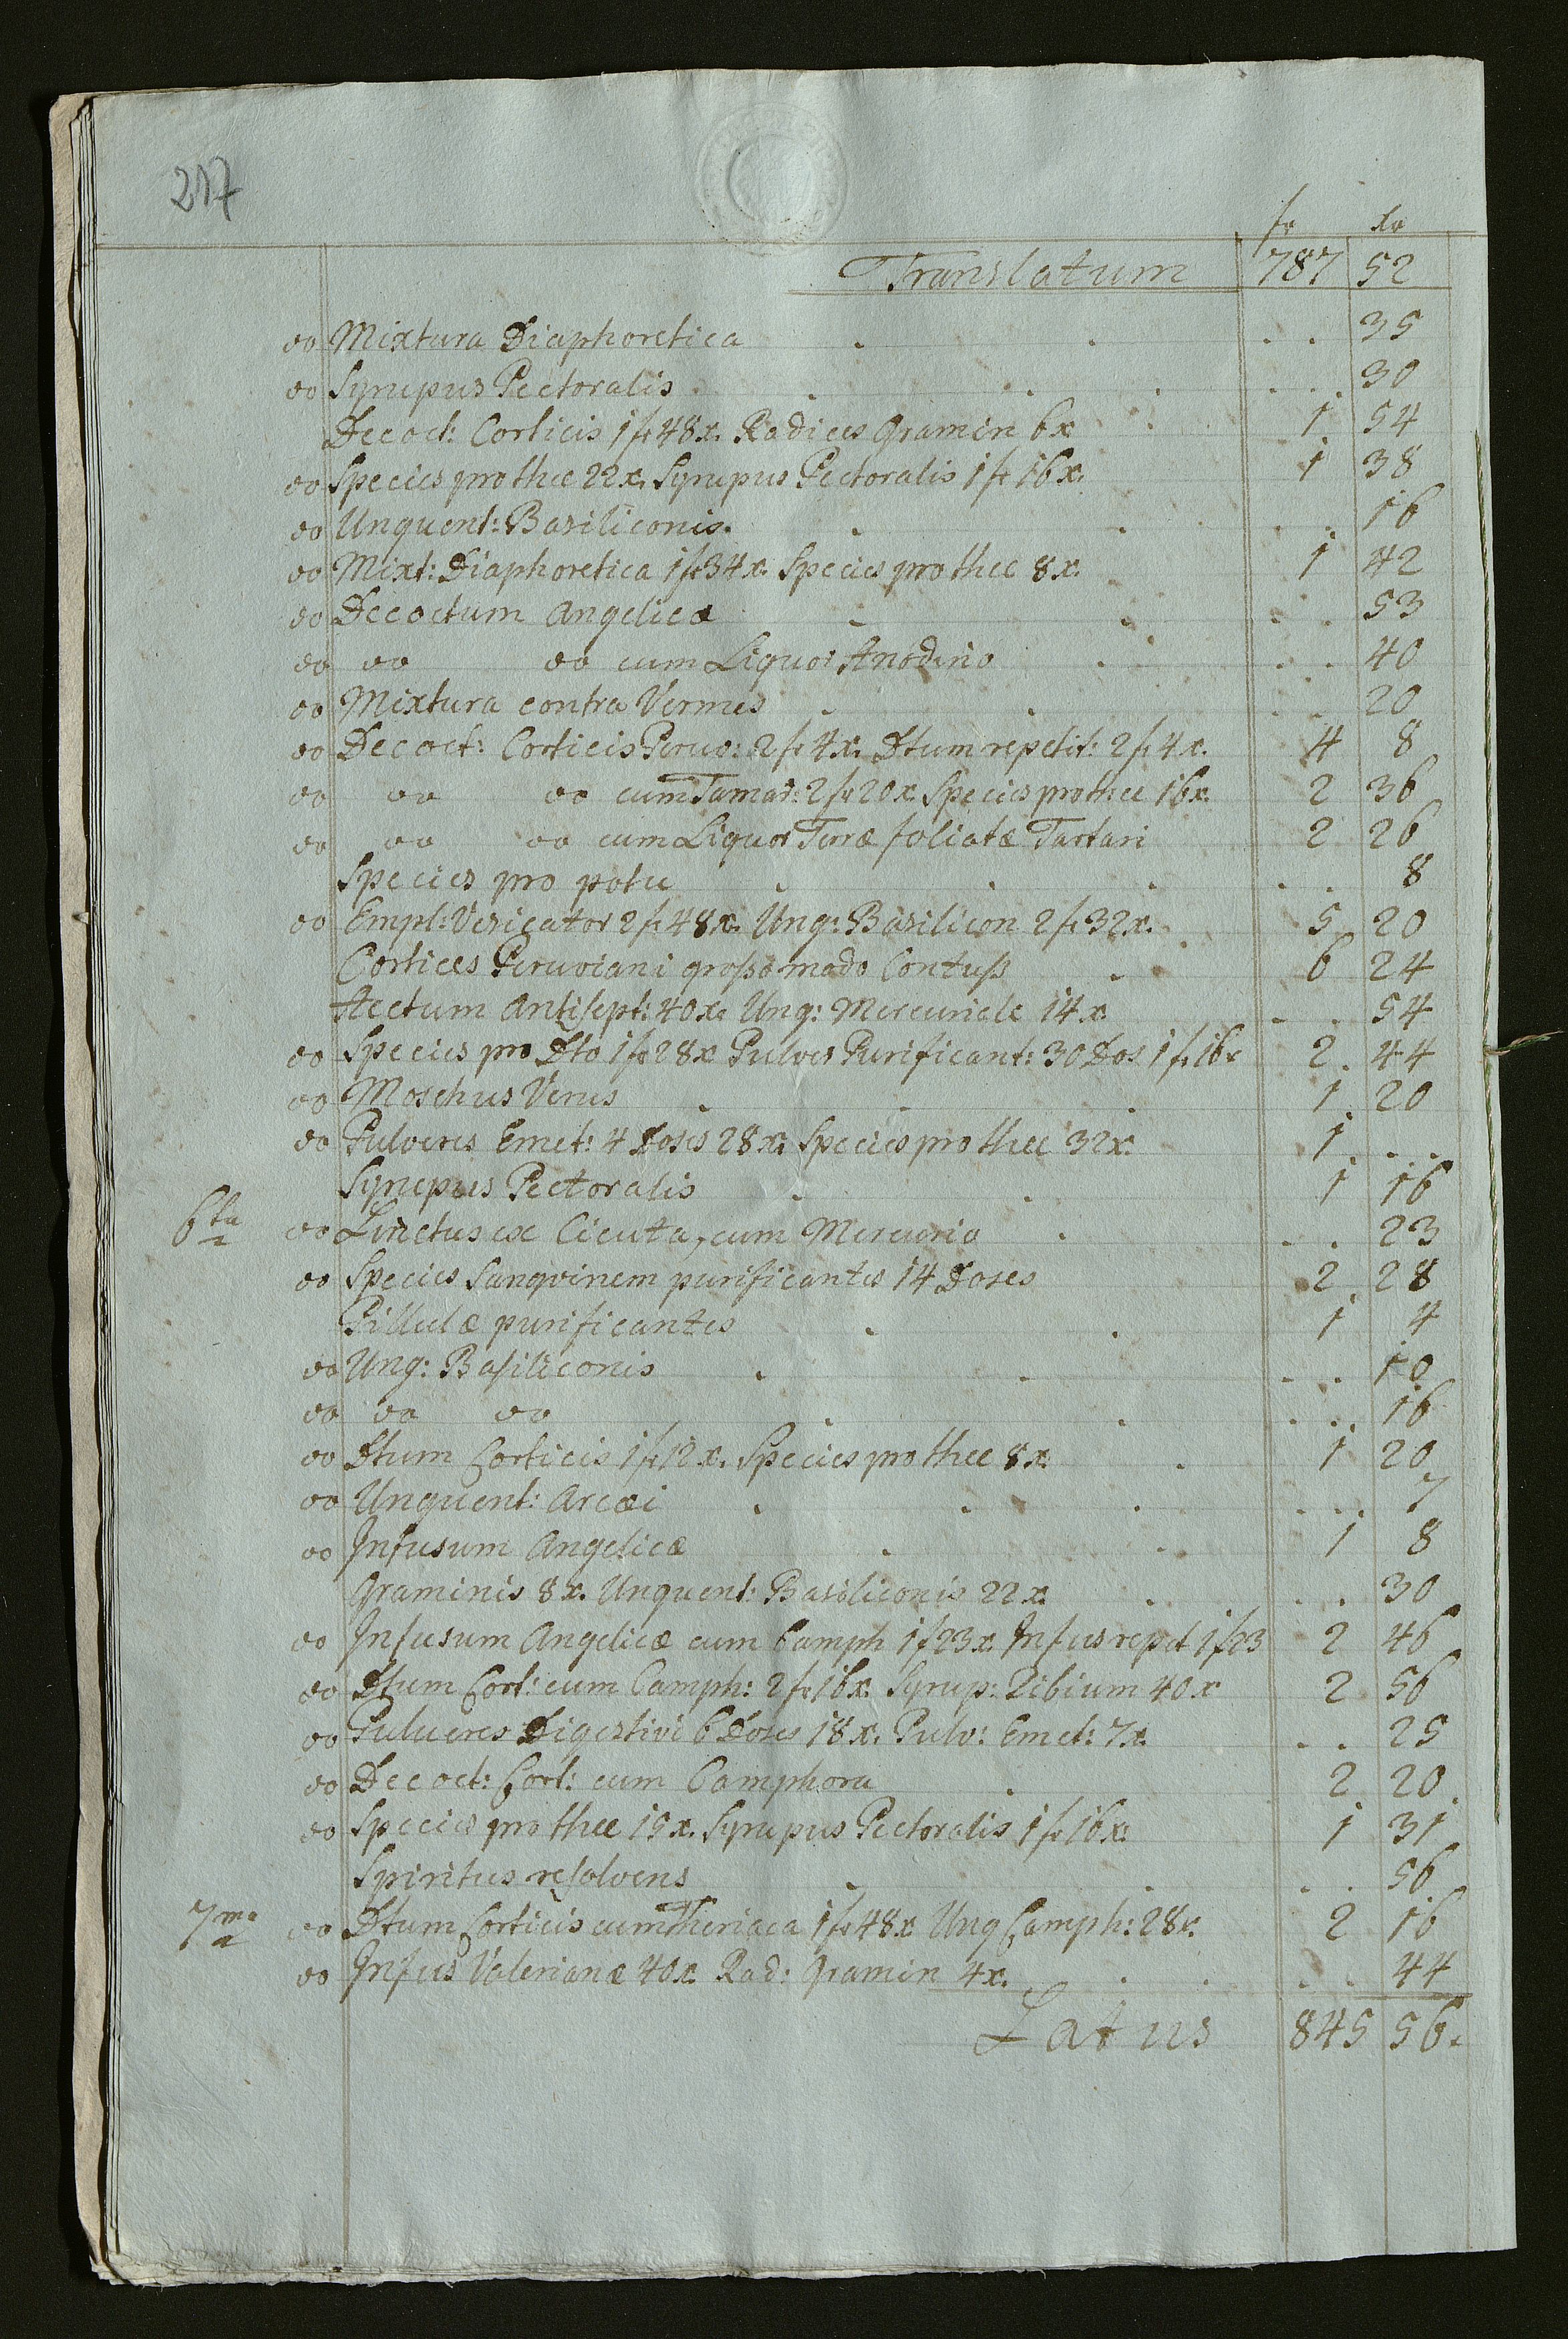 217
fr xr
Translatum 787 52
oo Mixtura Diaphoretica . . . . 35
oo Syrupus Pectoralis . . . . . 30
Decoct: Corticis 1 fr 48 x. Radices Gramin 6 x 1 54
oo Species pro thee 22 x. Syrupus Pectoralis 1 fr 16 x. 1 38
oo Unguent: Basiliconis . . . . 16
oo Mixt: Diaphoretica 1 fr 34 x. Species pro thee 8 x. 1 42
oo Decoctum Angelicæ . . . . 53
oo oo oo cum Liquor Anodino . . . 40
oo Mixtura contra Vermes . . . . 20
oo Decoct: Corticis Peruv: 2 fr 4 x. Dtum repetit: 2 fr 4 x. 4 8
oo oo oo cum Tamar: 2 fr 20 x. Species pro thee 16 x. 2 36
oo oo oo cum Liquor Terræ foliatæ Tartari 2 26
Species pro potu . . . . . 8
oo Empl: Vesicator 2 fr 48 x. Ung: Basilicon 2 fr 32 x. 5 20
Cortices Peruviani grosso modo Contuss . 6 24
Acetum Antisept: 40 x. Ung: Mercuriale 14 x . . 54
oo Species pro Dto 1 fr 28 x Pulver Purificant: 30 Dos 1 fr 16 x 2 44
oo Moschus Verus . . . 1 20
oo Pulveres Emet: 4 Doses 28 x. Species pro thee 32 x. 1 . . .
Syrupus Pectoralis . . 1 16
6ta oo Linctus ex Cicuta, cum Mercurio . . . 23
oo Species Sanqvinem purificantes 14 Doses 2 28
Pillulæ purificantes . . 1 4
oo Ung: Basiliconis . . . . 10
oo oo oo . . . . 16
oo Dtum Corticis 1 fr 12 x. Species pro thee 8 x. . 1 20
oo Unguent: Arcæi . . . . . . 7
oo Infusum Angelicæ . . 1 8
Graminis 8 x. Unguent: Basiliconis 22 x. . . . 30
oo Infusum Angelicæ cum Camph 1 f 23 x. Infus repet 1 f 23 2 46
oo Dtum Cort: cum Camph: 2 fr 16 x. Syrup: Zibium 40 x 2 56
oo Pulveres Digestivi 6 Doses 18 x. Pulv: Emet: 7 x. . . 25
oo Decoct: Cort: cum Camphora . 2 20
oo Species pro thee 15 x. Syrupus Pectoralis 1 fr 16 x. 1 31
Spiritus resolvens . . . . 56
7ma oo Dtum Corticis cum Theriaca 1 fr 48 x Ung Camph: 28 x. 2 16
oo Infus Valerianæ 40 x. Rad: Gramin 4 x. . . . . 44
Latus 845 56.